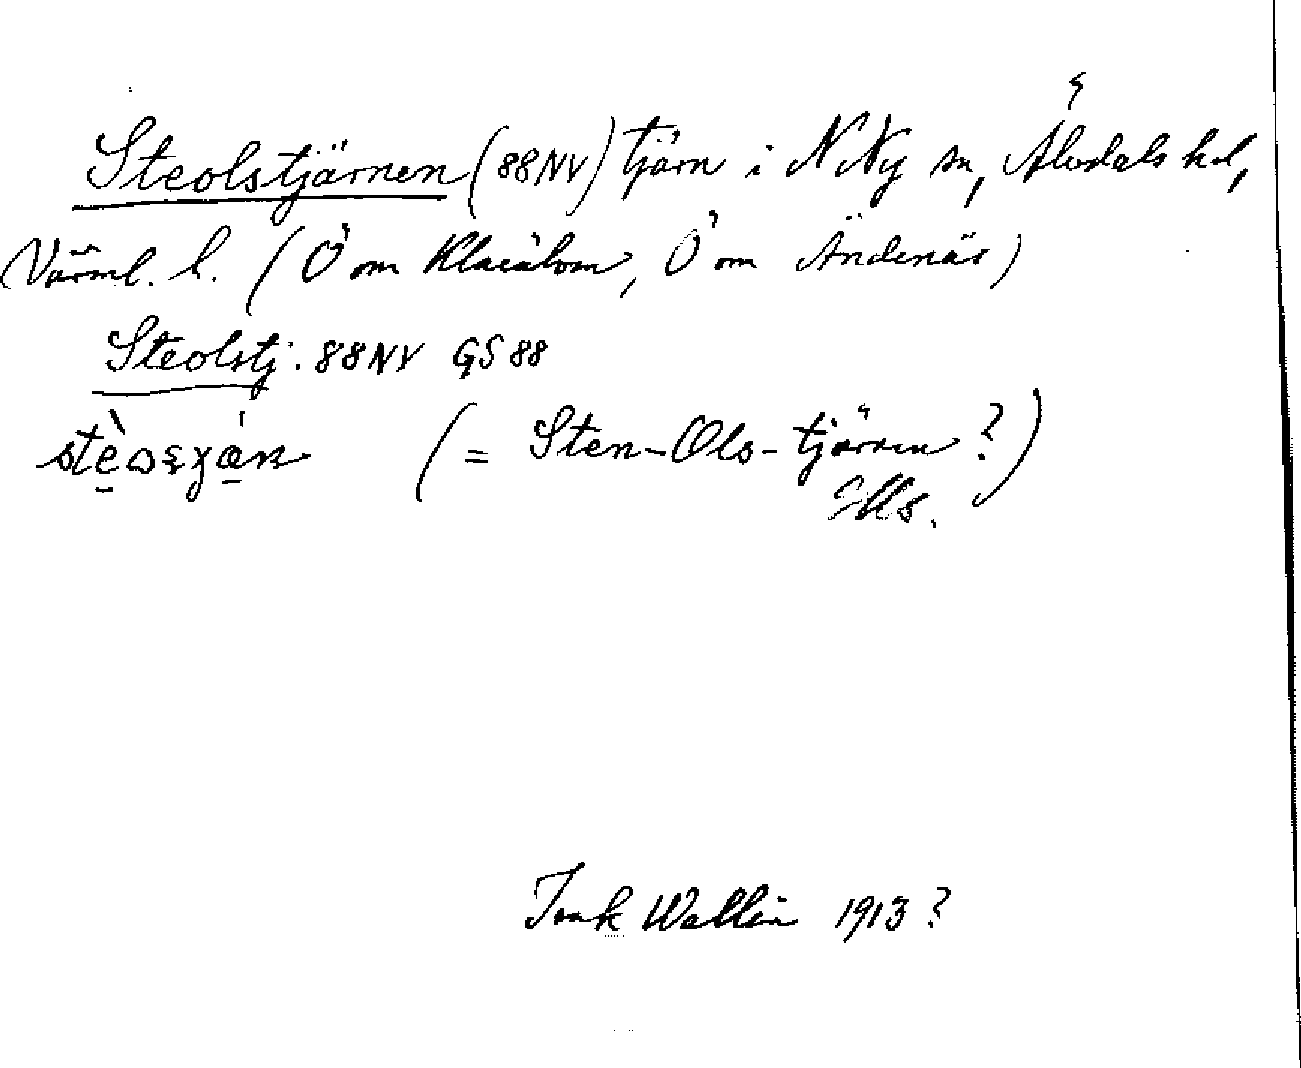 Steolstjärnen (88NV) tjärn i N Ny sn, Älvdals hd,
Värml. l. (Ö om Klarälven, Ö om Ändenäs)
Steolstj. 88NV GS 88
(= Sten-Ols-tjärnen?)
Wallin 1913?